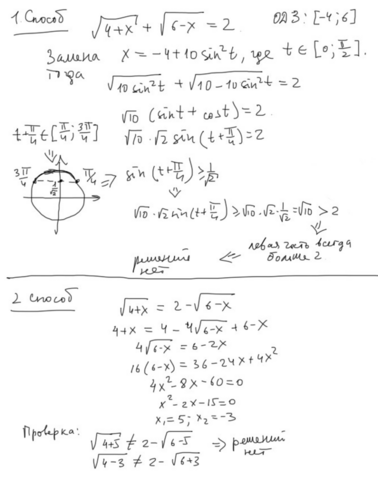 1. Способ √(4+x) + √(6-x) = 2 ОДЗ: [-4; 6]
Замена x = -4+10 sin²t, где t ∈ [0; π/2].
тогда √(10 sin²t) + √(10-10 sin²t) = 2
√10 (sin t + cos t) = 2
t+π/4 ∈ [π/4; 3π/4] √10 · √2 sin(t+π/4) = 2
3π/4 1/√2 π/4 ⇒ sin(t+π/4) ≥ 1/√2
√10 · √2 sin(t+π/4) ≥ √10 · √2 · 1/√2 = √10 > 2
решений нет ⇐ левая часть всегда больше 2
2 способ
√(4+x) = 2-√(6-x)
4+x = 4-4√(6-x) + 6-x
4√(6-x) = 6-2x
16(6-x) = 36-24x+4x²
4x²-8x-60=0
x²-2x-15=0
x₁=5; x₂=-3
Проверка: √(4+5) ≠ 2-√(6-5) ⇒ решений нет
√(4-3) ≠ 2-√(6+3)